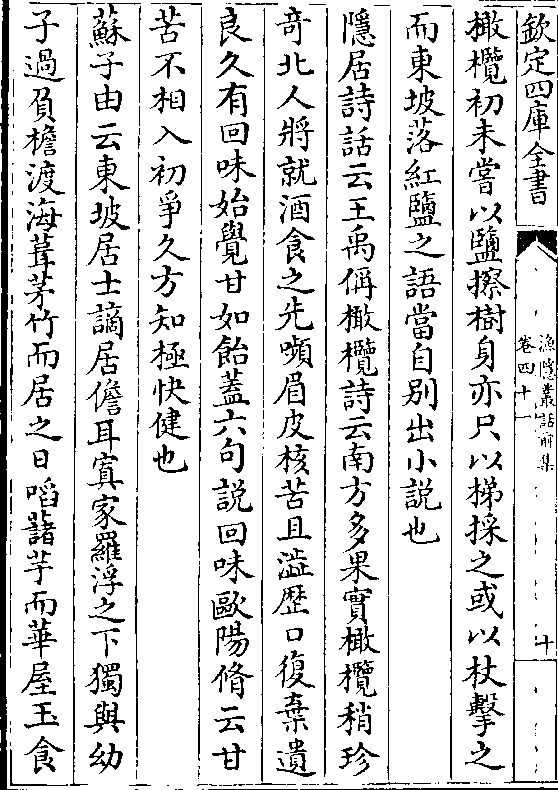 欽定四庫全書
漁隱叢話前集
卷四十一
十
橄欖初未嘗以鹽擦樹身亦只以梯採之或以杖擊之
而東坡落紅鹽之語當自別出小說也
隱居詩話云王禹偁橄欖詩云南方多果實橄欖稍珍
奇北人將就酒食之先嚬眉皮核苦且澁歷口復棄遺
良久有回味始覺甘如飴蓋六句說回味歐陽脩云甘
苦不相入初爭久方知極快健也
蘇子由云東坡居士謫居儋耳寘家羅浮之下獨與幼
子過負檐渡海葺茅竹而居之日啗藷芋而華屋玉食